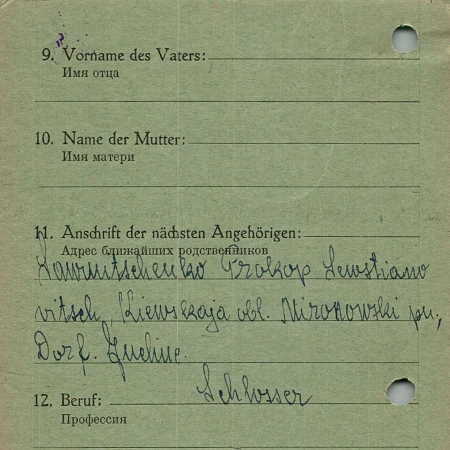 9. Vorname des Vaters:
Имя отца
10. Name der Mutter:
Имя матери
11. Anschrift der nächsten Angehörigen:
Адрес ближайших родственников
Lawrutschenko Prokop Lewstiano
vitsch, Kiewskaja obl. Mironowski
Dorf.
12. Beruf: Schlosser
Профессия